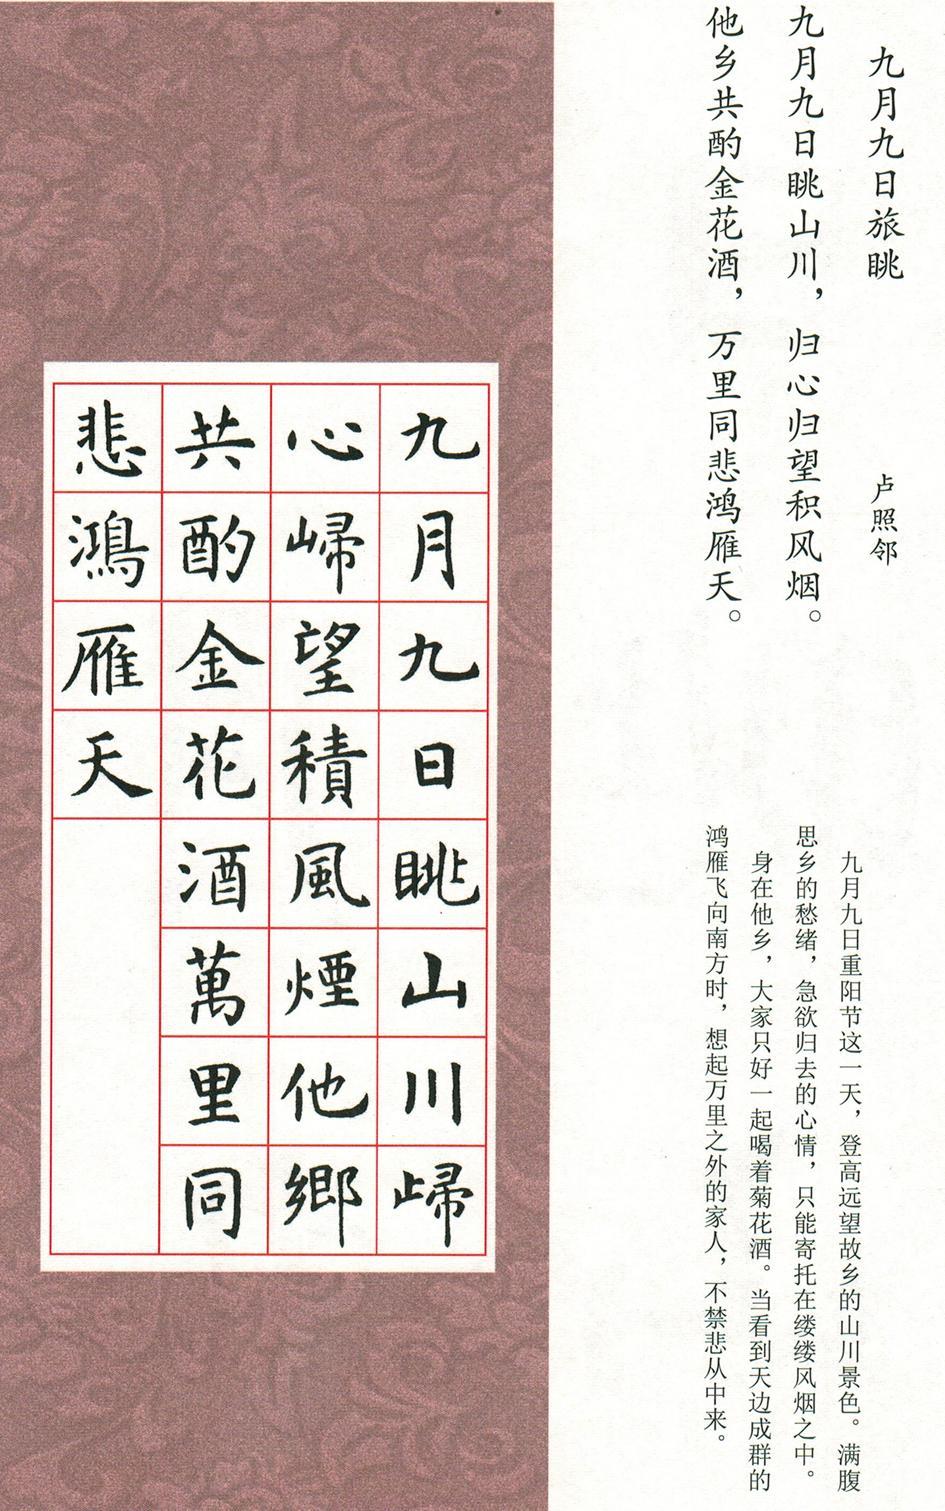 九月九日旅眺
卢照邻
九月九日眺山川，归心归望积风烟。
他乡共酌金花酒，万里同悲鸿雁天。
九月九日重阳节这一天，登高远望故乡的山川景色。满腹
思乡的愁绪，急欲归去的心情，只能寄托在缕缕风烟之中。
身在他乡，大家只好一起喝着菊花酒。当看到天边成群的
鸿雁飞向南方时，想起万里之外的家人，不禁悲从中来。
九月九日眺山川歸
心歸望積風煙他鄉
共酌金花酒萬里同
悲鴻雁天